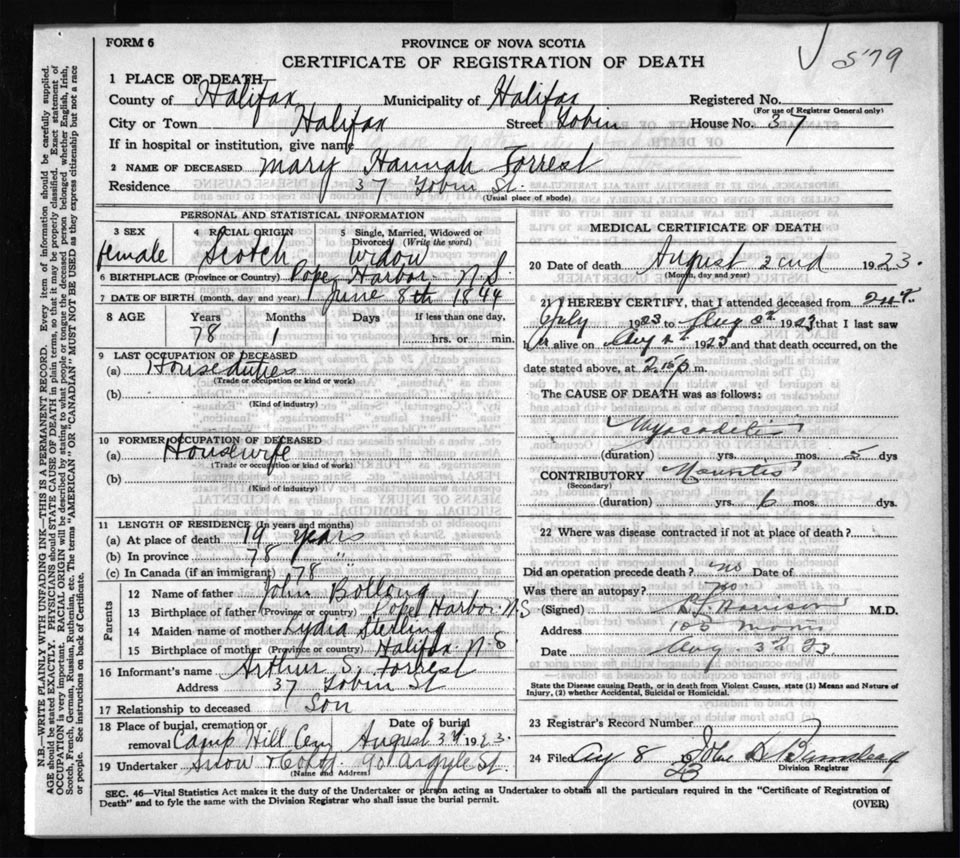 FORM 6
PROVINCE OF NOVA SCOTIA
CERTIFICATE OF REGISTRATION OF DEATH
1 PLACE OF DEATH
County of Halifax Municipality of Halifax Registered No.
(For use of Registrar General only)
City or Town Halifax Street Tobin House No. 37
If in hospital or institution, give name
2 NAME OF DECEASED Mary Hannah Forrest
Residence 37 Tobin St.
(Usual place of abode)
PERSONAL AND STATISTICAL INFORMATION
3 SEX 4 RACIAL ORIGIN 5 Single, Married, Widowed or Divorced (Write the word)
female Scotch Widow
6 BIRTHPLACE (Province or Country) Pope Harbor N.S.
7 DATE OF BIRTH (month, day and year) June 8th 1844
8 AGE Years Months Days If less than one day,
78 1 hrs. or min.
9 LAST OCCUPATION OF DECEASED
(a) House duties
(Trade or occupation or kind or work)
(b)
(Kind of industry)
10 FORMER OCCUPATION OF DECEASED
(a) Housewife
(Trade or occupation or kind of work)
(b)
(Kind of industry)
11 LENGTH OF RESIDENCE (In years and months)
(a) At place of death 19 years
(b) In province 78 "
(c) In Canada (if an immigrant) 78
Parents
12 Name of father John Bollong
13 Birthplace of father (Province or country) Pope Harbor N.S
14 Maiden name of mother Lydia Sterling
15 Birthplace of mother (Province or country) Halifax N.S
16 Informant's name Arthur S. Forrest
Address 37 Tobin St
17 Relationship to deceased Son
18 Place of burial, cremation or removal Camp Hill Cem Date of burial August 3rd 1923.
19 Undertaker Snow & Co 90 Argyle St.
(Name and Address)
MEDICAL CERTIFICATE OF DEATH
20 Date of death August 2nd 1923.
(Month, day and year)
21 I HEREBY CERTIFY, that I attended deceased from
July 1923 to Aug 1923 that I last saw
alive on Aug 2 1923 and that death occurred, on
date stated above, at 2.15 p.m.
The CAUSE OF DEATH was as follows:
(duration) yrs. mos. 5 dys
CONTRIBUTORY
(Secondary)
(duration) yrs. 6 mos. dys.
22 Where was disease contracted if not at place of death?
Did an operation precede death? no Date of
Was there an autopsy? no
(Signed) M.D.
Address
Date Aug. 3rd 23
State the Disease causing Death, or in death from Violent Causes, state (1) Means and Nature of Injury, (2) whether Accidental, Suicidal or Homicidal.
23 Registrar's Record Number
24 Filed Aug 8 John
Division Registrar
SEC. 46—Vital Statistics Act makes it the duty of the Undertaker or person acting as Undertaker to obtain all the particulars required in the "Certificate of Registration of
Death" and to fyle the same with the Division Registrar who shall issue the burial permit.
(OVER)
N.B.—WRITE PLAINLY WITH UNFADING INK—THIS IS A PERMANENT RECORD. Every item of information should be carefully supplied.
AGE should be stated EXACTLY. PHYSICIANS should STATE CAUSE OF DEATH in plain terms, so that it may be properly classified. Exact statement of
OCCUPATION is very important. RACIAL ORIGIN will be described by stating to what people or tongue the deceased person belonged whether English, Irish,
Scotch, French, German, Russian, Ruthenian, etc. The terms "AMERICAN" OR "CANADIAN" MUST NOT BE USED as they express citizenship but not a race
or people. See instructions on back of Certificate.